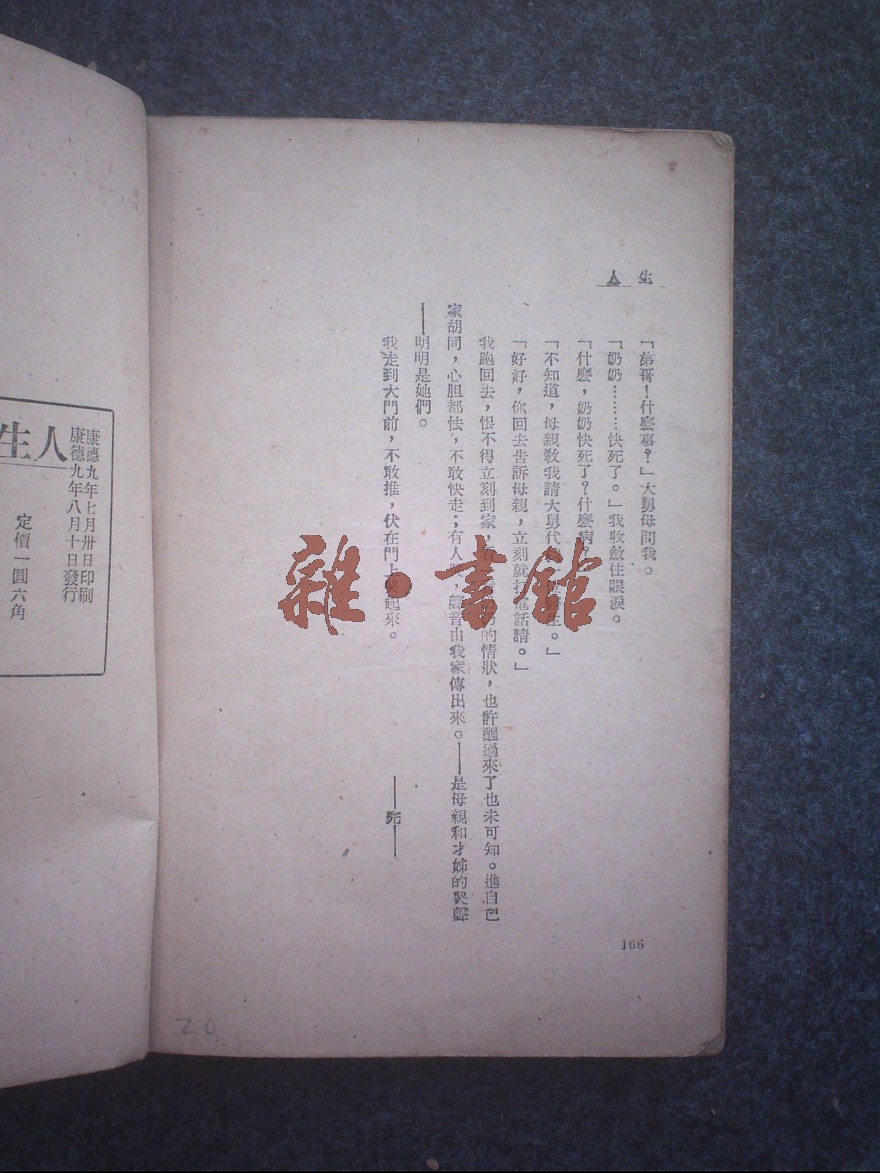 生
人
「弟哥！什麽事？」大舅母問我。
「奶奶………快死了。」我收斂住眼淚。
「什麽，奶奶快死了？什麽病
「不知道，母親敎我請大舅代 生。」
「好好，你回去告訴母親，立刻就打電話請。」
我跑回去，恨不得立刻到家， 的情狀，也許醒過來了也未可知。進自己
家胡同，心胆都怯，不敢快走；有人哭，聲音由我家傳出來。——是母親和才姊的哭聲
——明明是她們。
我走到大門前，不敢推，伏在門上哭起來。
——完——
166
雜·書館
20
人生
康德九年七月卅日印刷
康德九年八月十日發行
定價一圓六角